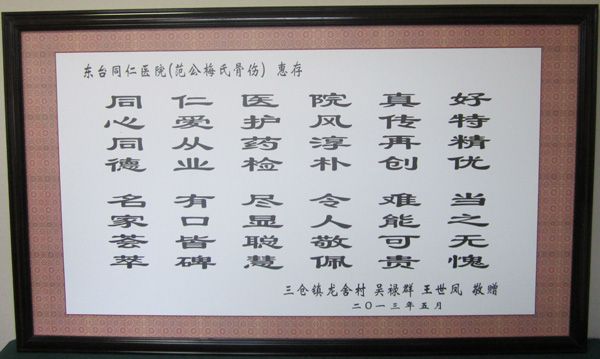 东台同仁医院(范公梅氏骨伤) 惠存
同心同德
仁爱从业
医护药检
院风淳朴
真传再创
好特精优
名家荟萃
有口皆碑
尽显聪慧
令人敬佩
难能可贵
当之无愧
三仓镇龙舍村 吴禄群 王世凤 敬赠
二〇一三年五月